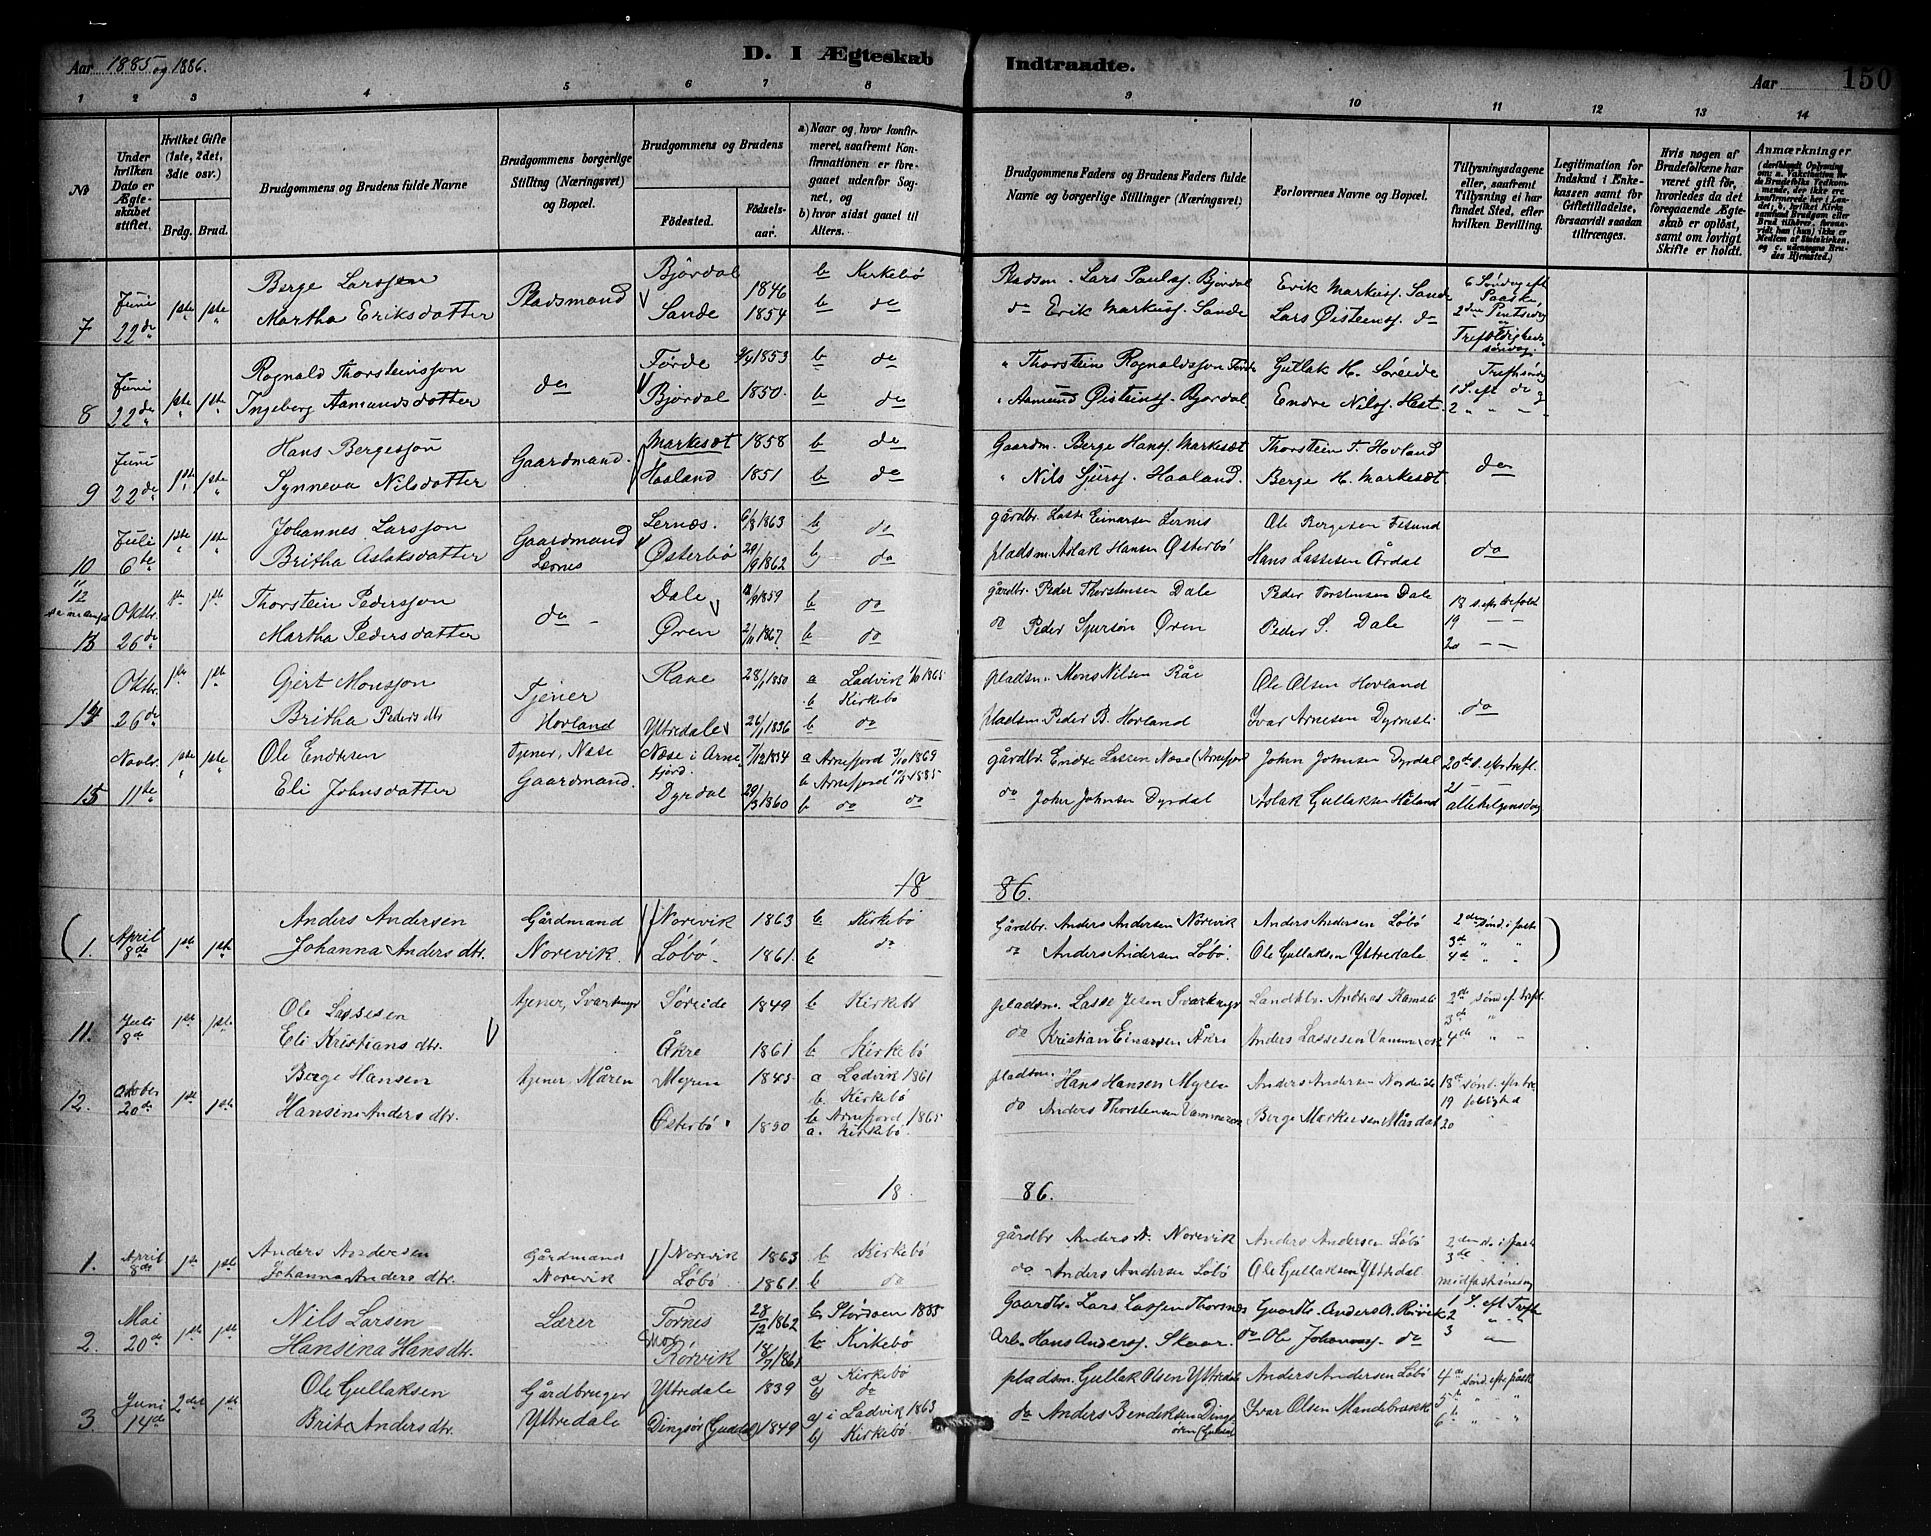 Aar 1885 og 1886.
D. I Ægteskab Indtraadte.
Aar
150
1 2 3 4 5 6 7 8 9 10 11 12 13 14
No
Under hvilken Dato er Ægteskabet stiftet.
Hvilket Gifte (1ste, 2det, 3die osv.)
Brdg. Brud.
Brudgommens og Brudens fulde Navne
Brudgommens borgerlige Stilling (Næringsvei) og Bopæl.
Brudgommens og Brudens
Fødested. Fødselsaar.
a) Naar og, hvor konfirmeret, saafremt Konfirmationen er foregaaet udenfor Sognet, og
b) hvor sidst gaaet til Alters.
Brudgommens Faders og Brudens Faders fulde Navne og borgerlige Stillinger (Næringsvei)
Forlovernes Navne og Bopæl.
Tillysningsdagene eller, saafremt Tillysning ei har fundet Sted, efter hvilken Bevilling.
Legitimation for Indskud i Enkekassen samt for Giftetilladelse, forsaavidt saadan tiltrænges.
Hvis nogen af Brudefolkene har været gift før, hvorledes da det foregaaende Ægteskab er opløst, samt om lovligt Skifte er holdt.
Anmærkninger
7 Juni 22de 1ste 1ste Berge Larssen Pladsmand Bjørdal 1846 b Kirkebø Pladsm. Lars Paulss. Bjørdal Erik Markuss. Sande 6 Søndag eft Paaske,
Martha Eriksdatter Sande 1854 b do do Erik Markuss. Sande Lars Øisteins. do 2den Pintsedag og Trefoldighedssøndag.
8 Juni 22de 1ste 1ste Rognald Thorsteinsson do Førde 1853 b do " Thorstein Rognaldsson Førde Gullak H. Søreide
Ingeborg Aamundsdatter Bjørdal 1850. b do " Aamund Øisteins. Bjørdal. Endre Nilss. Hest. 1 S. eft do
9 Juni 22de 1ste 1ste Hans Bergesson Gaardmand. Markesæt 1858 b do Gaardm. Berge Hanss. Markesæt Thorstein T. Hovland do
Synneva Nilsdatter Haaland 1851 b do " Nils Sjurss. Haaland. Berge H. Markesæt
10 Juli 6te 1ste 1ste Johannes Larsson Gaardmand Lernes. 6/8 1863 b do gårdbr. Lasse Einarsen Lernes Ole Bergesen
Britha Aslaksdatter Lernes Østerbø 29/9 1862 b do pladsm. Aslak Hansen Østerbø Hans Lassesen Årdal do
11 12
13 Oktbr. 26de 1ste 1ste Thorstein Pedersson do Dale 1859 b do gårdbr. Peder Thorstensen Dale Peder Torstensen Dale 18 s. eftr trefold
Martha Pedersdatter Øren 2/11 1867. b do do Peder Sjursøn Øren Peder S. Dale 19 — —
20 — —
14 Oktbr. 26de 1ste 1ste Gjert Monsson Tjener Raae 28/1 1850 a Ladvik 1/10 1865 pladsm. Mons Nilsen Råe Ole Olsen Hovland
b Kirkebø
Britha Pedersdtr Hovland Yttredale 26/1 1836 b do pladsm. Peder B. Hovland Ivar Arnesen Dyrnesli do
15 Novbr. 11te 1ste 1ste Ole Endresen Tjener, Næse Næse i Arnefjord. 7/12 1854 a Arnefjord 3/10 1869 gårdbr. Endre Lassen Næse (Arnefjord John Johnsen Dyrdal 20de s. eftr trefl.
Gaardmand. b Arnefjord 1885
Eli Johnsdatter Dyrdal 29/3 1860 b do do do John Johnsen Dyrdal Aslak Gullaksen Håland 21 allehelgensdag
18 86.
(1. April 8de 1ste 1ste Anders Andersen Gårdmand Norevik 1863 b Kirkebø Gårdbr. Anders Andersen Norevik Anders Andersen Løbø 2den sønd. i faste )
Johanna Andersdtr. Norevik. Løbø. 1861. b do do Anders Andersen Løbø. Ole Gullaksen Yttredale. 3de " "
4de " "
11. Juli 8de 1ste 1ste Ole Lassesen tjener, Svartmyr Søreide 1849 b Kirkebø pladsm. Lasse Jesen Svartmyr Landhbr. Andreas Ramslo 2de sønd. ef. trefl.
Eli Kristiansdtr. Åkre 1861 b Kirkebø do Kristian Einarsen Åkre Anders Lassesen Vammeråk 3de "
4de " "
12. Oktober 20de 1ste 1ste Berge Hansen tjener, Måren Myren 1845. a Ladvik 1861 pladsm. Hans Hansen Myren Anders Andersen Nordeide 18de sønd. eftr tre
b Kirkebø 19 foldighed
Hansina Andersdtr. Østerbø 1850 b Arnefjord 1865 do Anders Thorstensen Vammeraak Berge Markussen Måsdal 20
a. Kirkebø.
18. 86.
1. April 8de 1ste 1ste Anders Andersen Gårdmand Norevik 1863 b Kirkebø gårdbr Anders A. Norevik Anders Andersen Løbø 2den sø. i faste
Johanna Andersdtr. Norevik Løbø 1861. b do do Anders Andersen Løbø Ole Gullaksen Yttredal. 3de
midfastsøndag
2. Mai 20de 1ste 1ste Nils Larsen Lærer Tornes 28/12 1862 b Stordøen 1885 Gaardbr. Lars Lassen Thornes Gaardbr. Anders A. Rørvik 1 S. eft Trefh
Hansina Hansdtr. Rørvik 18/7 1861 b Kirkebø Arb. Hans Anderss. Skaar. do Ole Johanness. do 2 " "
3 "
3. Juni 14de 2det 1ste Ole Gullaksen Gårdbruger Yttredale 1839 a) Kirkebø pladsm. Gullak Olsen Yttredal Anders Andersen Løbø 4de sønd. eftr påsk
b) do
Brita Andersdtr. Yttredale Dingsør (Guddal) 1849 a) i Ladvik 1863 do Anders Bendiksen Dingsøren (Guddal Ivar Olsen Mandebrækk 5te " "
b) Kirkebø 6te " "